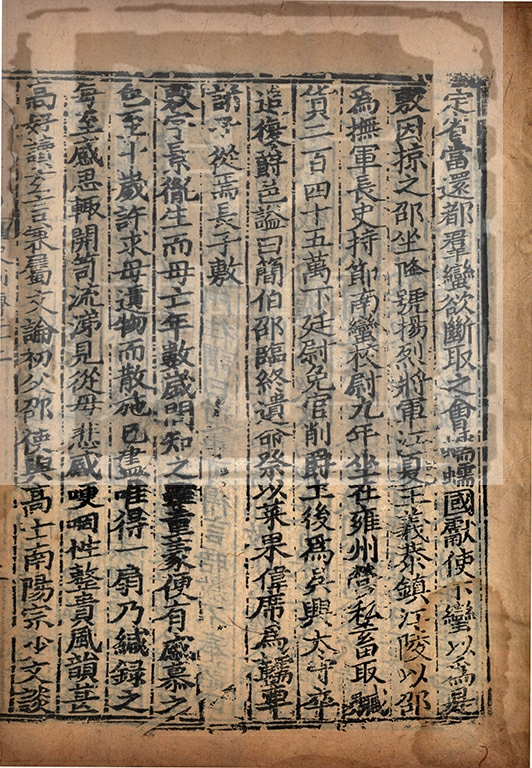 定省當還都羣蠻欲斷取之會蠕蠕國獻使下蠻以爲是
敷因掠之邵坐降號揚烈將軍江夏王義恭鎮江陵以邵
爲撫軍長史持節南蠻校尉九年坐在雍州營私畜取贓
貨二百四十五萬下廷尉免官削爵土後爲吳興太守卒
追復爵邑謚曰簡伯邵臨終遺命祭以菜果葦席爲轜車
諸子從焉長子敷
敷字景胤生而母亡年數歲問知之雖童蒙便有感慕之
色至十歲許求母遺物而散施已盡唯得一扇乃緘録之
每至感思輙開笥流涕見從母悲感哽咽性整貴風韻甚
高好讀玄言兼屬文論初父邵使與高士南陽宗少文談